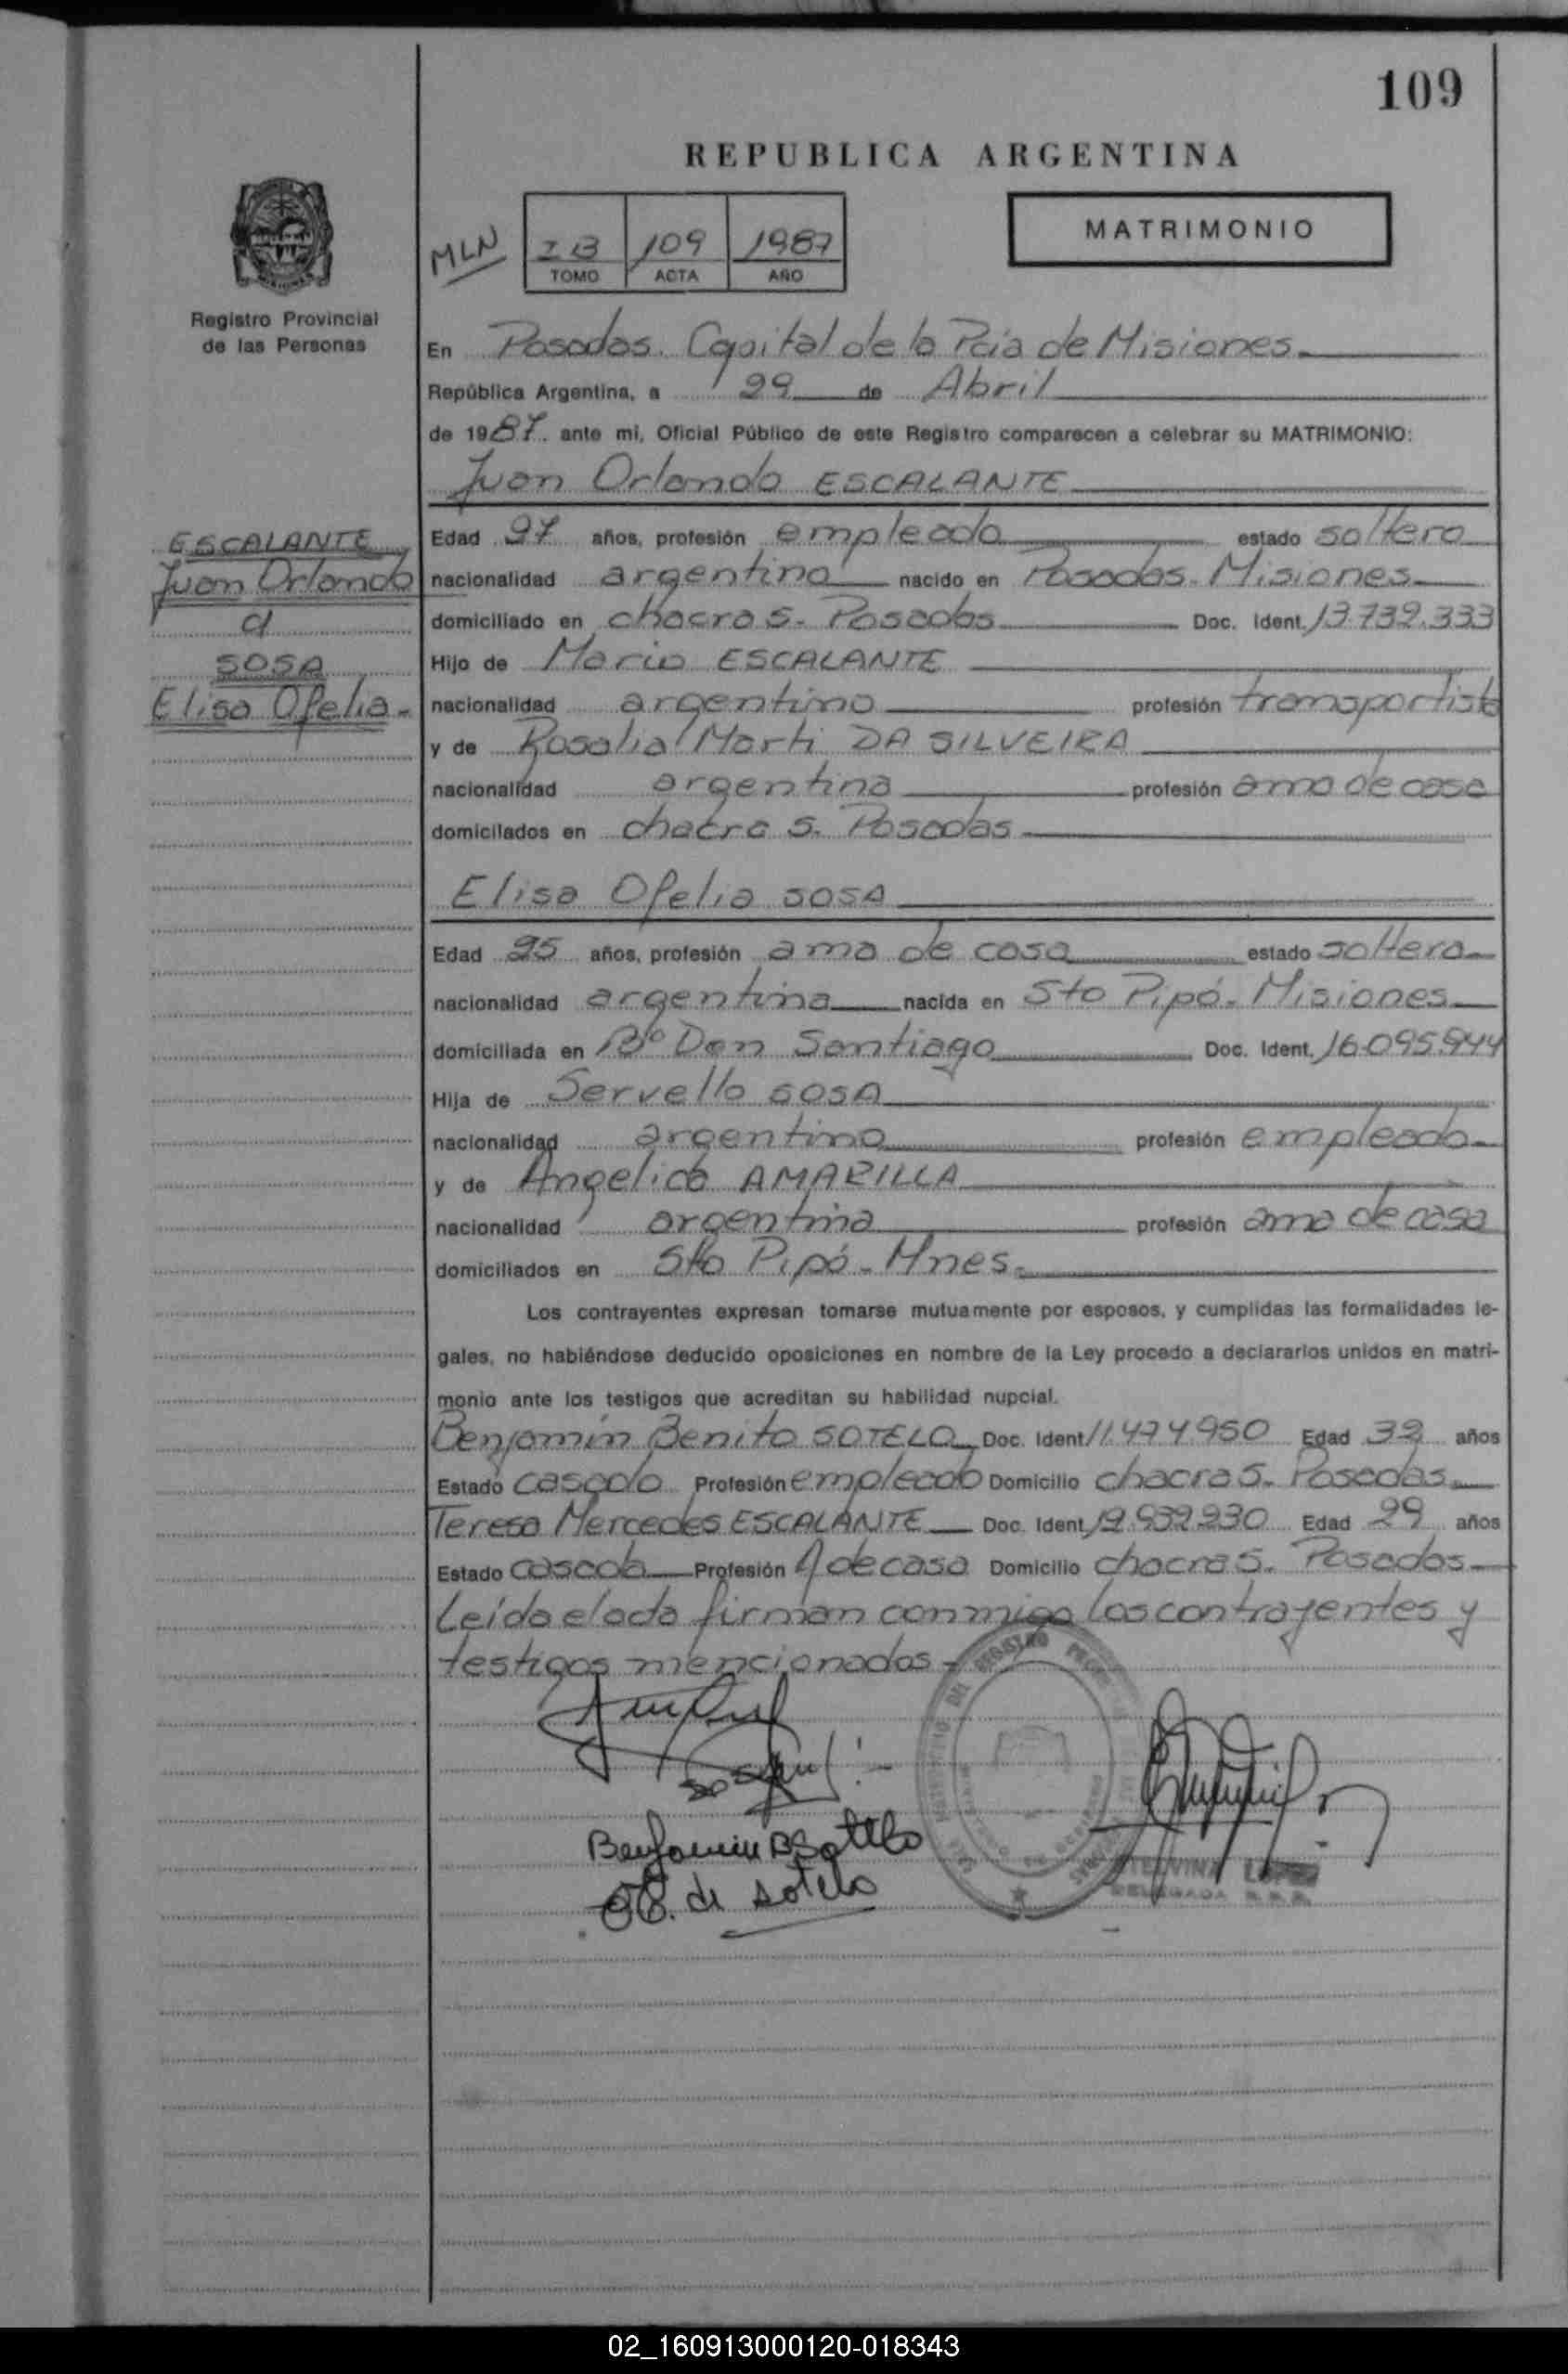 109
REPUBLICA ARGENTINA
MLN
I B 109 1987
TOMO ACTA AÑO
MATRIMONIO
Registro Provincial
de las Personas
En Posadas. Capital de la Pcia de Misiones
República Argentina, a 29 de Abril
de 1987. ante mi, Oficial Público de este Registro comparecen a celebrar su MATRIMONIO:
Juan Orlando ESCALANTE
ESCALANTE
Juan Orlando
c/
SOSA
Elisa Ofelia.-
Edad 27 años, profesión empleado estado soltero
nacionalidad argentino nacido en Posadas. Misiones
domiciliado en chacra 5. Posadas Doc. Ident. 13.732.333
Hijo de Mario ESCALANTE
nacionalidad argentino profesión transportista
y de Rosalia Marti DA SILVEIRA
nacionalidad argentina profesión ama de casa
domicilados en chacra 5. Posadas
Elisa Ofelia SOSA
Edad 25 años, profesión ama de casa estado soltera
nacionalidad argentina nacida en Sto Pipó. Misiones
domiciliada en Bº Don Santiago Doc. Ident. 16.095.944
Hija de Servello SOSA
nacionalidad argentino profesión empleado
y de Angelica AMARILLA
nacionalidad argentina profesión ama de casa
domiciliados en Sto Pipó. Mnes.
Los contrayentes expresan tomarse mutuamente por esposos, y cumplidas las formalidades le-
gales, no habiéndose deducido oposiciones en nombre de la Ley procedo a declararlos unidos en matri-
monio ante los testigos que acreditan su habilidad nupcial.
Benjamín Benito SOTELO Doc. Ident 11.474.950 Edad 32 años
Estado casado Profesión empleado Domicilio chacra 5. Posadas
Teresa Mercedes ESCALANTE Doc. Ident 12.932.230 Edad 29 años
Estado casada Profesión A de casa Domicilio chacra 5. Posadas
Leída el acta firman conmigo los contrayentes y
testigos mencionados.-
Benjamin B Sotelo
de Sotelo
DEL REGISTRO
ETELVINA LOPEZ
DELEGADA R.P.P.
02_160913000120-018343